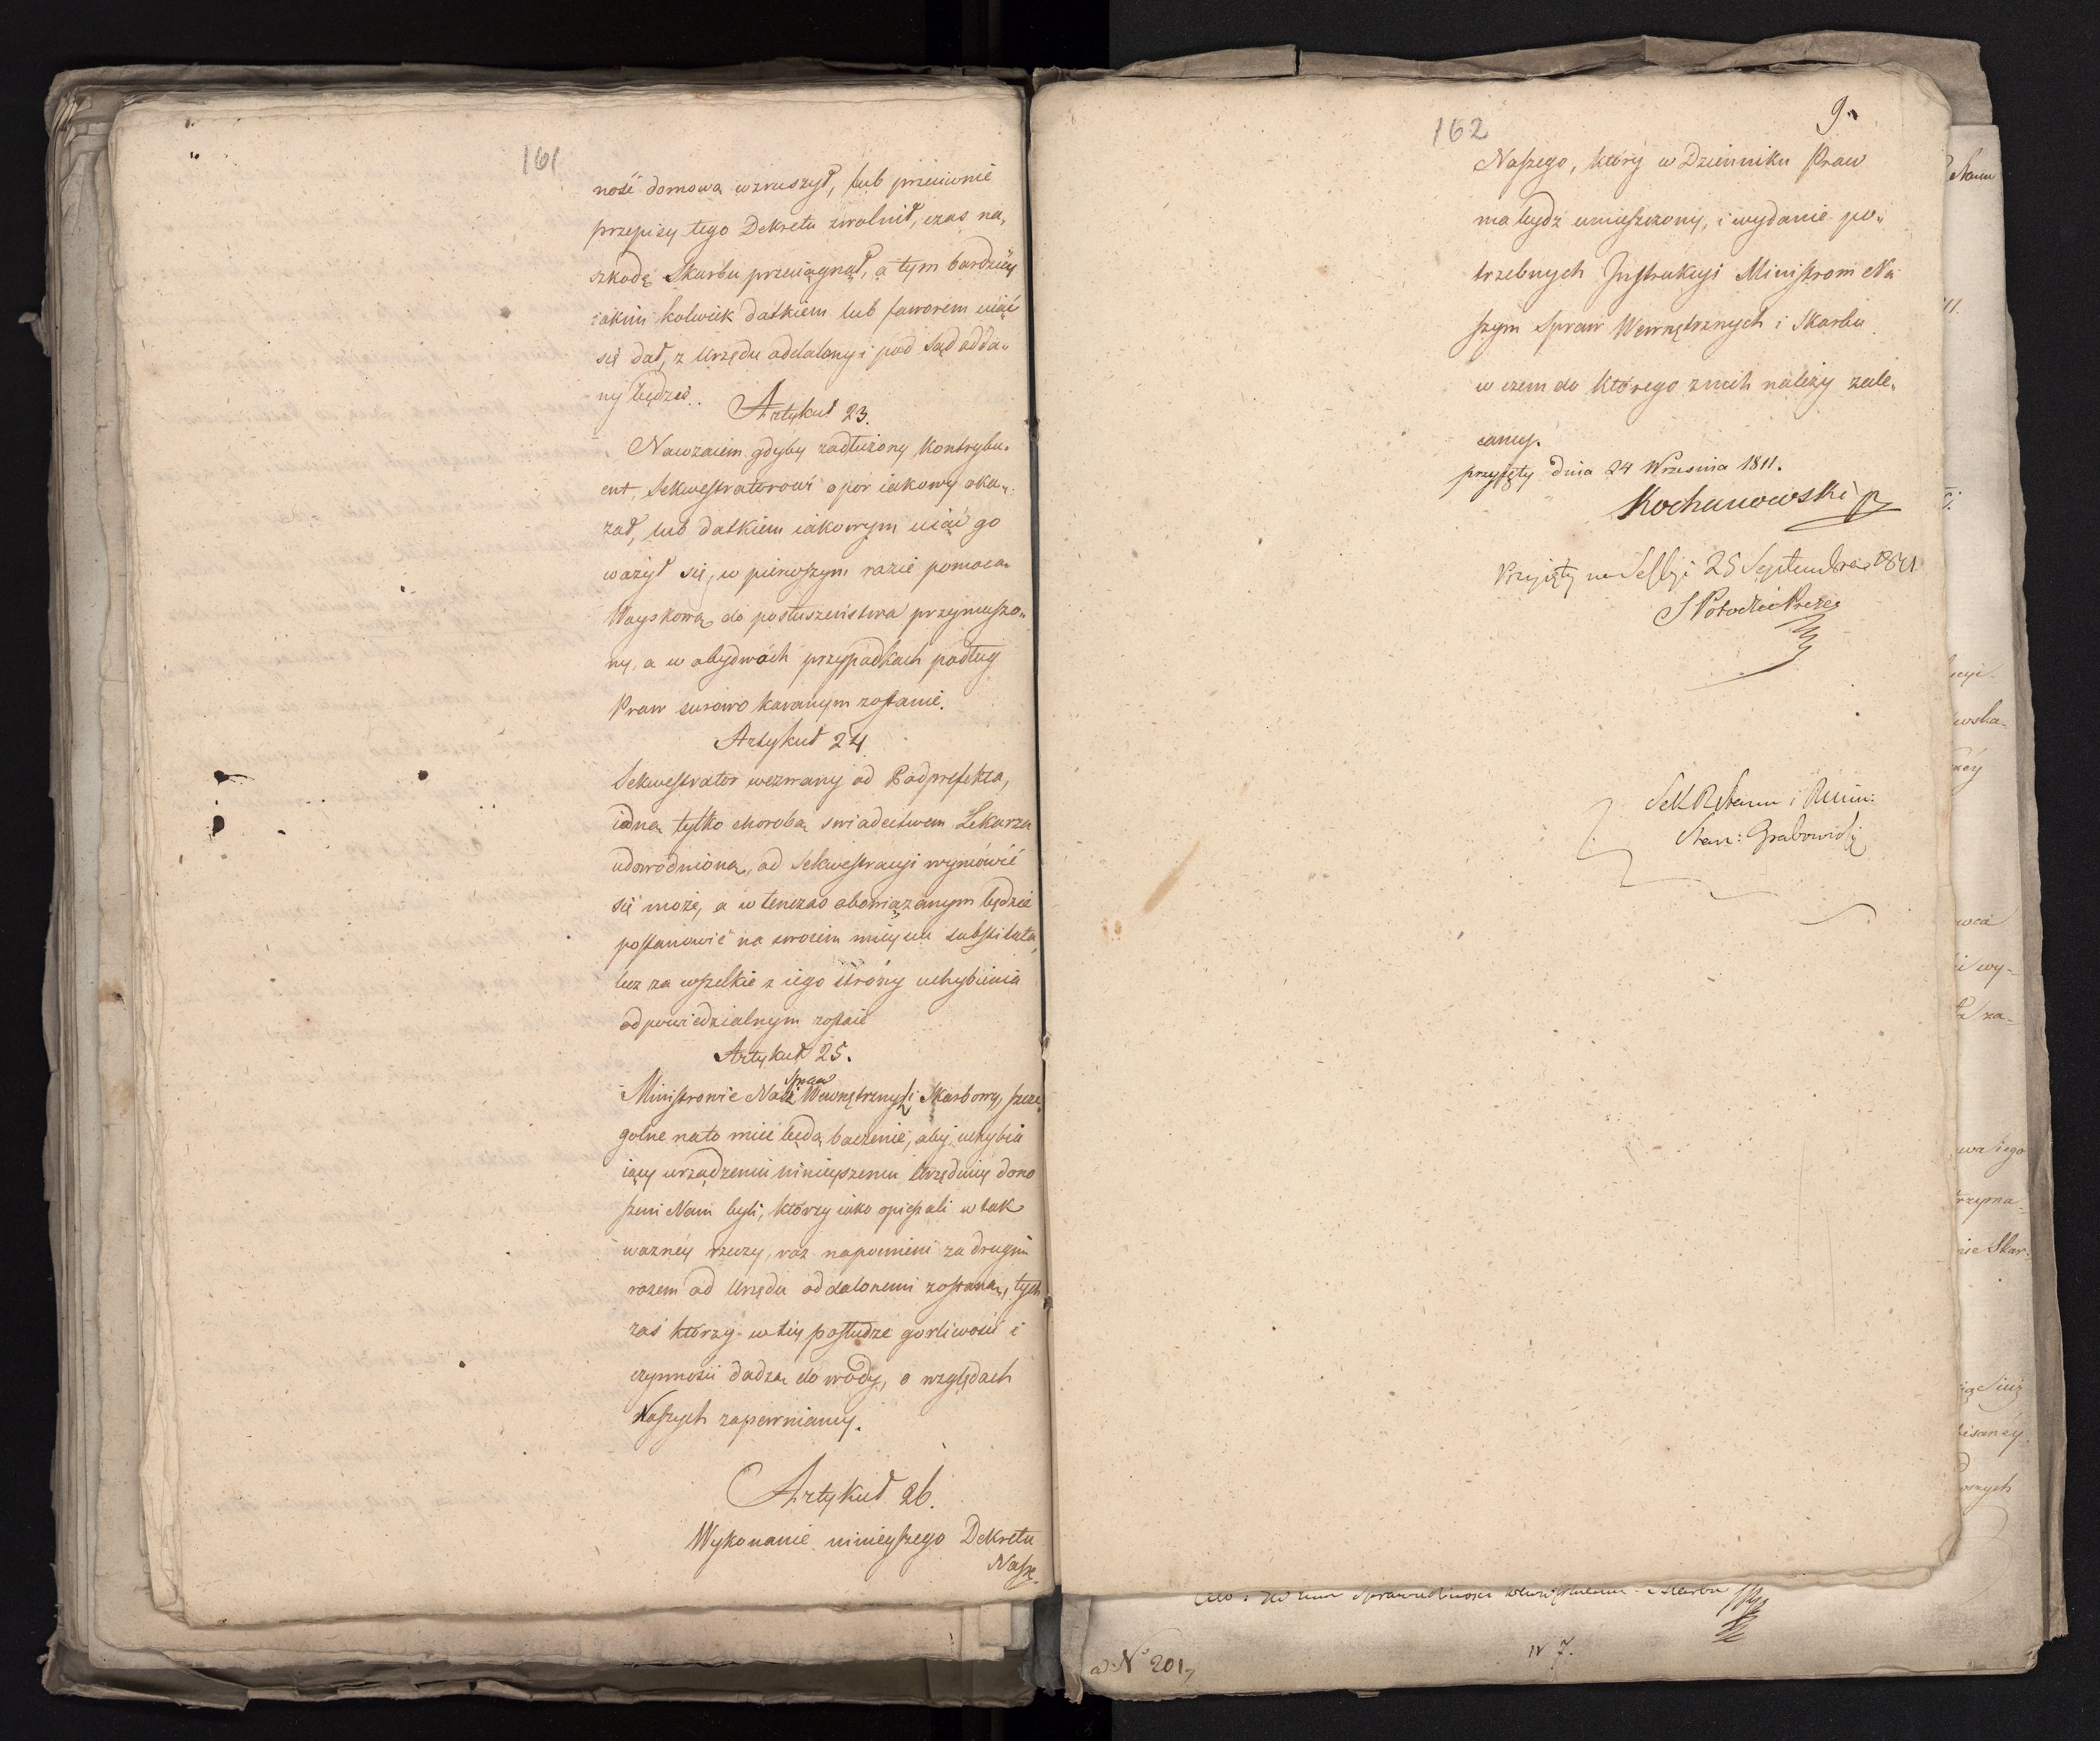 161
ność domową wzruszył, lub przeciwnie
przepisy tego Dekretu zwolnił, czas na„
szkodę Skarbu przeciągnął, a tym bardziéy
iakim kolwiek datkiem lub faworem uiąć
się dał, z Urzędu oddalony i pod Sąd odda„
ny będzie.
Artykuł 23.
Nawzaiem gdyby zadłużony Kontrybu„
ent, Sekwestratorowi opór iakowy oka„
zał, lub datkiem iakowym uiąć go
ważył się, w pierwszym razie pomocą
Woyskową do posłuszeństwa przymuszo„
ny, a w obydwóch przypadkach podług
Praw surowo karanym zostanie.
Artykuł 24
Sekwestrator wezwany od Podprefekta,
iedną tylko chorobą swiadectwem Lekarza
udowodnioną, od Sekwestracyi wymówić
się może, a w tenczas obowiązanym będzie
postanowić na swoiem mieyscu substituta,
lecz za wszelkie z iego strony uchybienia
odpowiedzialnym zostaie
Artykuł 25.
Spraw
Ministrowie Nasi Wewnętrznych i Skarbowy, szcze
golne na to mieć będą baczenie, aby uchybia
iący urządzeniu ninieyszemu Urzędnicy dono
szeni Nam byli, którzy iako opieszali w tak
ważnéy rzeczy, raz napomnieni za drugim
razem od Urzędu oddalonemi zostaną, tych
zaś którzy w téy posłudze gorliwości i
czynności dadzą dowody, o względach
Naszych zapewniamy.
Artykuł 26.
Wykonanie ninieyszego Dekretu
Nasze
162
9.
Naszego, który w Dzienniku Praw
ma bydź umieszczony, i wydanie po„
trzebnych Instrukcyi Ministrom Na
szym Spraw Wewnętrznych i Skarbu
w czem do którego z nich należy zale„
camy.
przyjęty dnia 24 Wrzesnia 1811.
Kochanowski
Przyjęty na Sessyi 25 Septembra 1811
S Potocki Prezes
Sek R Stanu i R Min:
Stan: Grabowski
ad N° 201,
N 7.